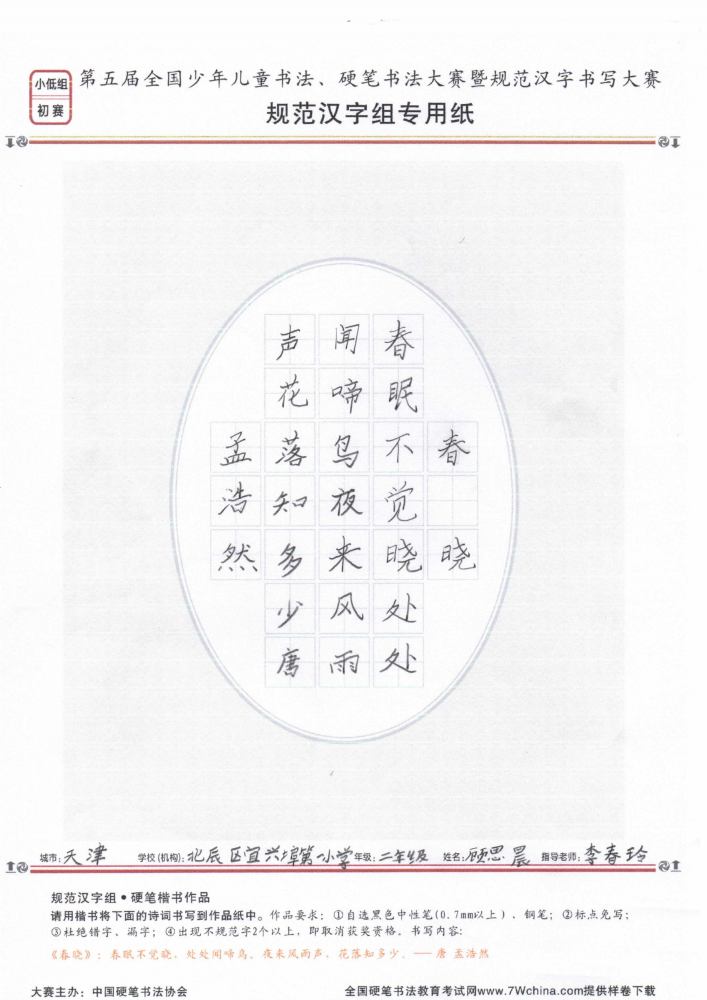 小低组
初赛
第五届全国少年儿童书法、硬笔书法大赛暨规范汉字书写大赛
规范汉字组专用纸
春晓
春眠不觉晓处处
闻啼鸟夜来风雨
声花落知多少唐
孟浩然
城市:天津 学校(机构):北辰区宜兴埠第一小学 年级:二年级 姓名:顾思晨 指导老师:李春玲
规范汉字组•硬笔楷书作品
请用楷书将下面的诗词书写到作品纸中。作品要求:①自选黑色中性笔(0.7mm以上)、钢笔;②标点免写;
③杜绝错字、漏字;④出现不规范字2个以上,即取消获奖资格。书写内容:
《春晓》:春眠不觉晓,处处闻啼鸟。夜来风雨声,花落知多少。——唐 孟浩然
大赛主办:中国硬笔书法协会 全国硬笔书法教育考试网www.7Wchina.com提供样卷下载